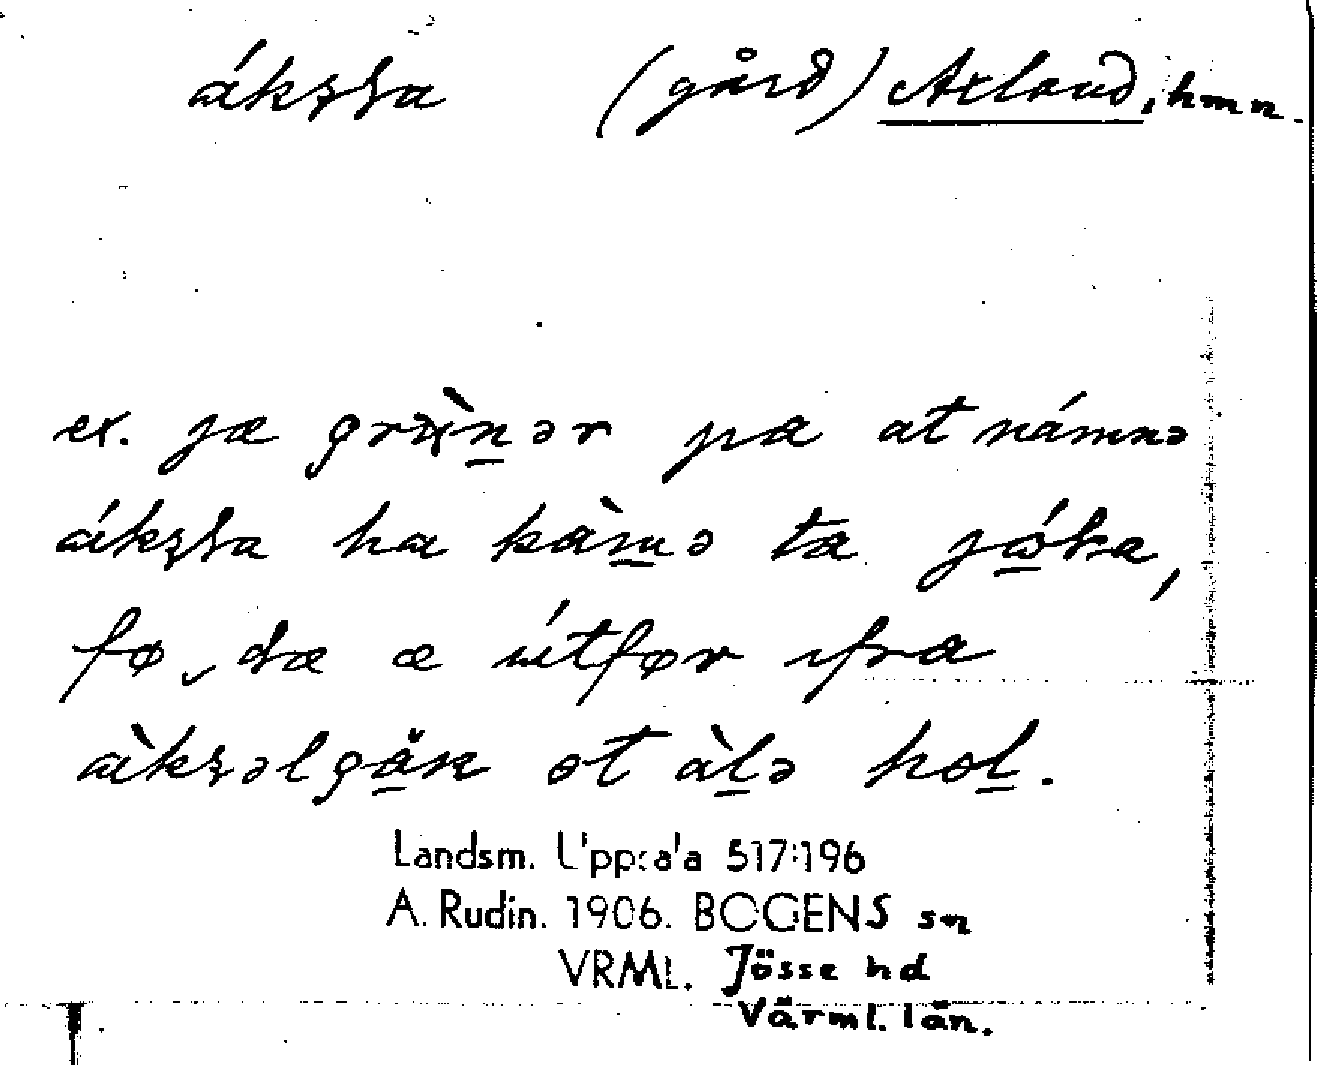 áksla (gård) Axland, hmn.
ex. ja grùnər pa at námnə
áksla ha kàmə ta jóka,
fø, dæ æ útfør ifra
àksəlgǻn ot àlə hol.
Landsm. Uppsala 517:196
A. Rudin. 1906. BOGENS sn
VRML. Jösse hd
Värml. län.